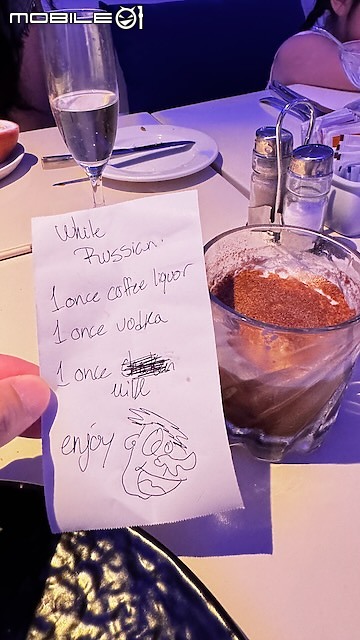 MOBILE01
White
Russian.
1 once coffee liquor
1 once vodka
1 once
milk
enjoy